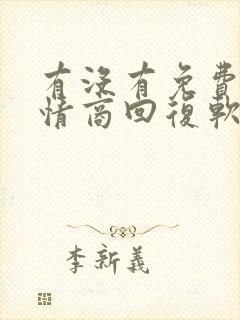 有没有免費
情商回復軟
李新義